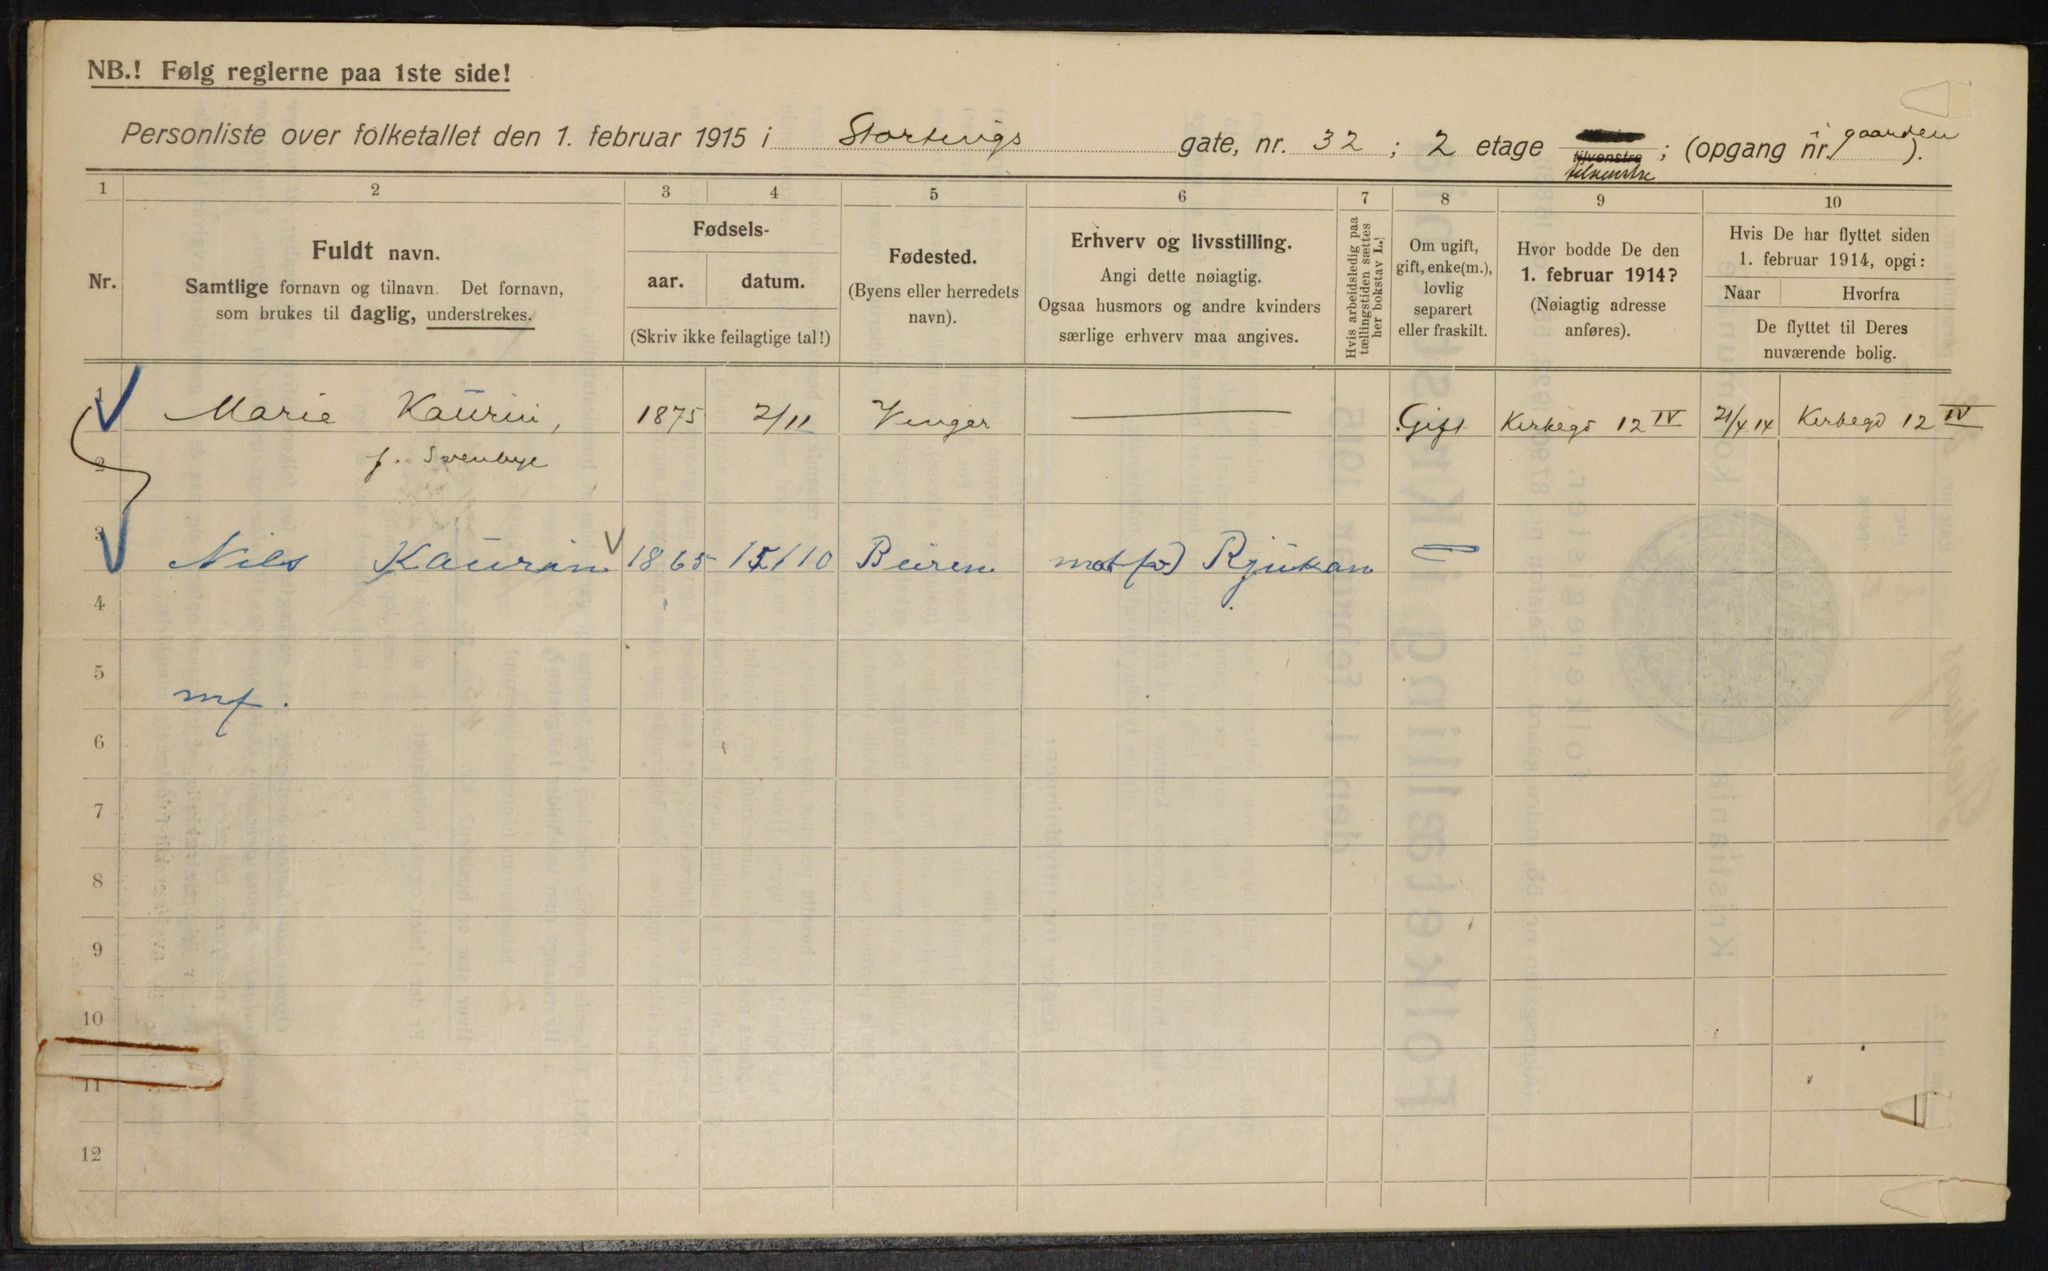 NB.! Følg reglerne paa 1ste side!
Personliste over folketallet den 1. februar 1915 i Stortings gate, nr. 32 ; 2 etage tilvenstre ; (opgang nr. i gaarden ).
tilvenstre
1 2 3 4 5 6 7 8 9 10
Nr.
Fuldt navn.
Samtlige fornavn og tilnavn. Det fornavn,
som brukes til daglig, understrekes.
Fødsels-
aar. datum.
(Skriv ikke feilagtige tal!)
Fødested.
(Byens eller herredets
navn).
Erhverv og livsstilling.
Angi dette nøiagtig.
Ogsaa husmors og andre kvinders
særlige erhverv maa angives.
Hvis arbeidsledig paa
tællingstiden sættes
her bokstav L.!
Om ugift,
gift, enke(m.),
lovlig
separert
eller fraskilt.
Hvor bodde De den
1. februar 1914?
(Nøiagtig adresse
anføres).
Hvis De har flyttet siden
1. februar 1914, opgi:
Naar Hvorfra
De flyttet til Deres
nuværende bolig.
1 Marie Kaurin, 1875 2/11 Vinger Gift Kirkegd 12 IV 21/4 14 Kirkegd 12 IV
2 f. Svenbye
3 Nils Kaurin 1865 15/10 Beiren Rjukan
4
5 mf.
6
7
8
9
10
11
12